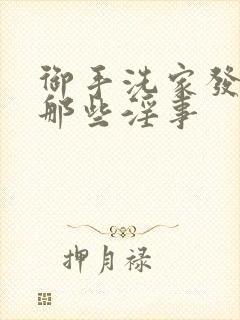 御手洗家發
那些淫事
押月禄